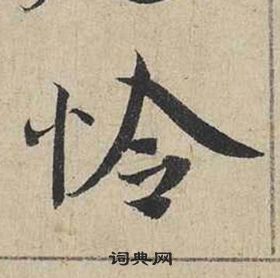 怜
词典网